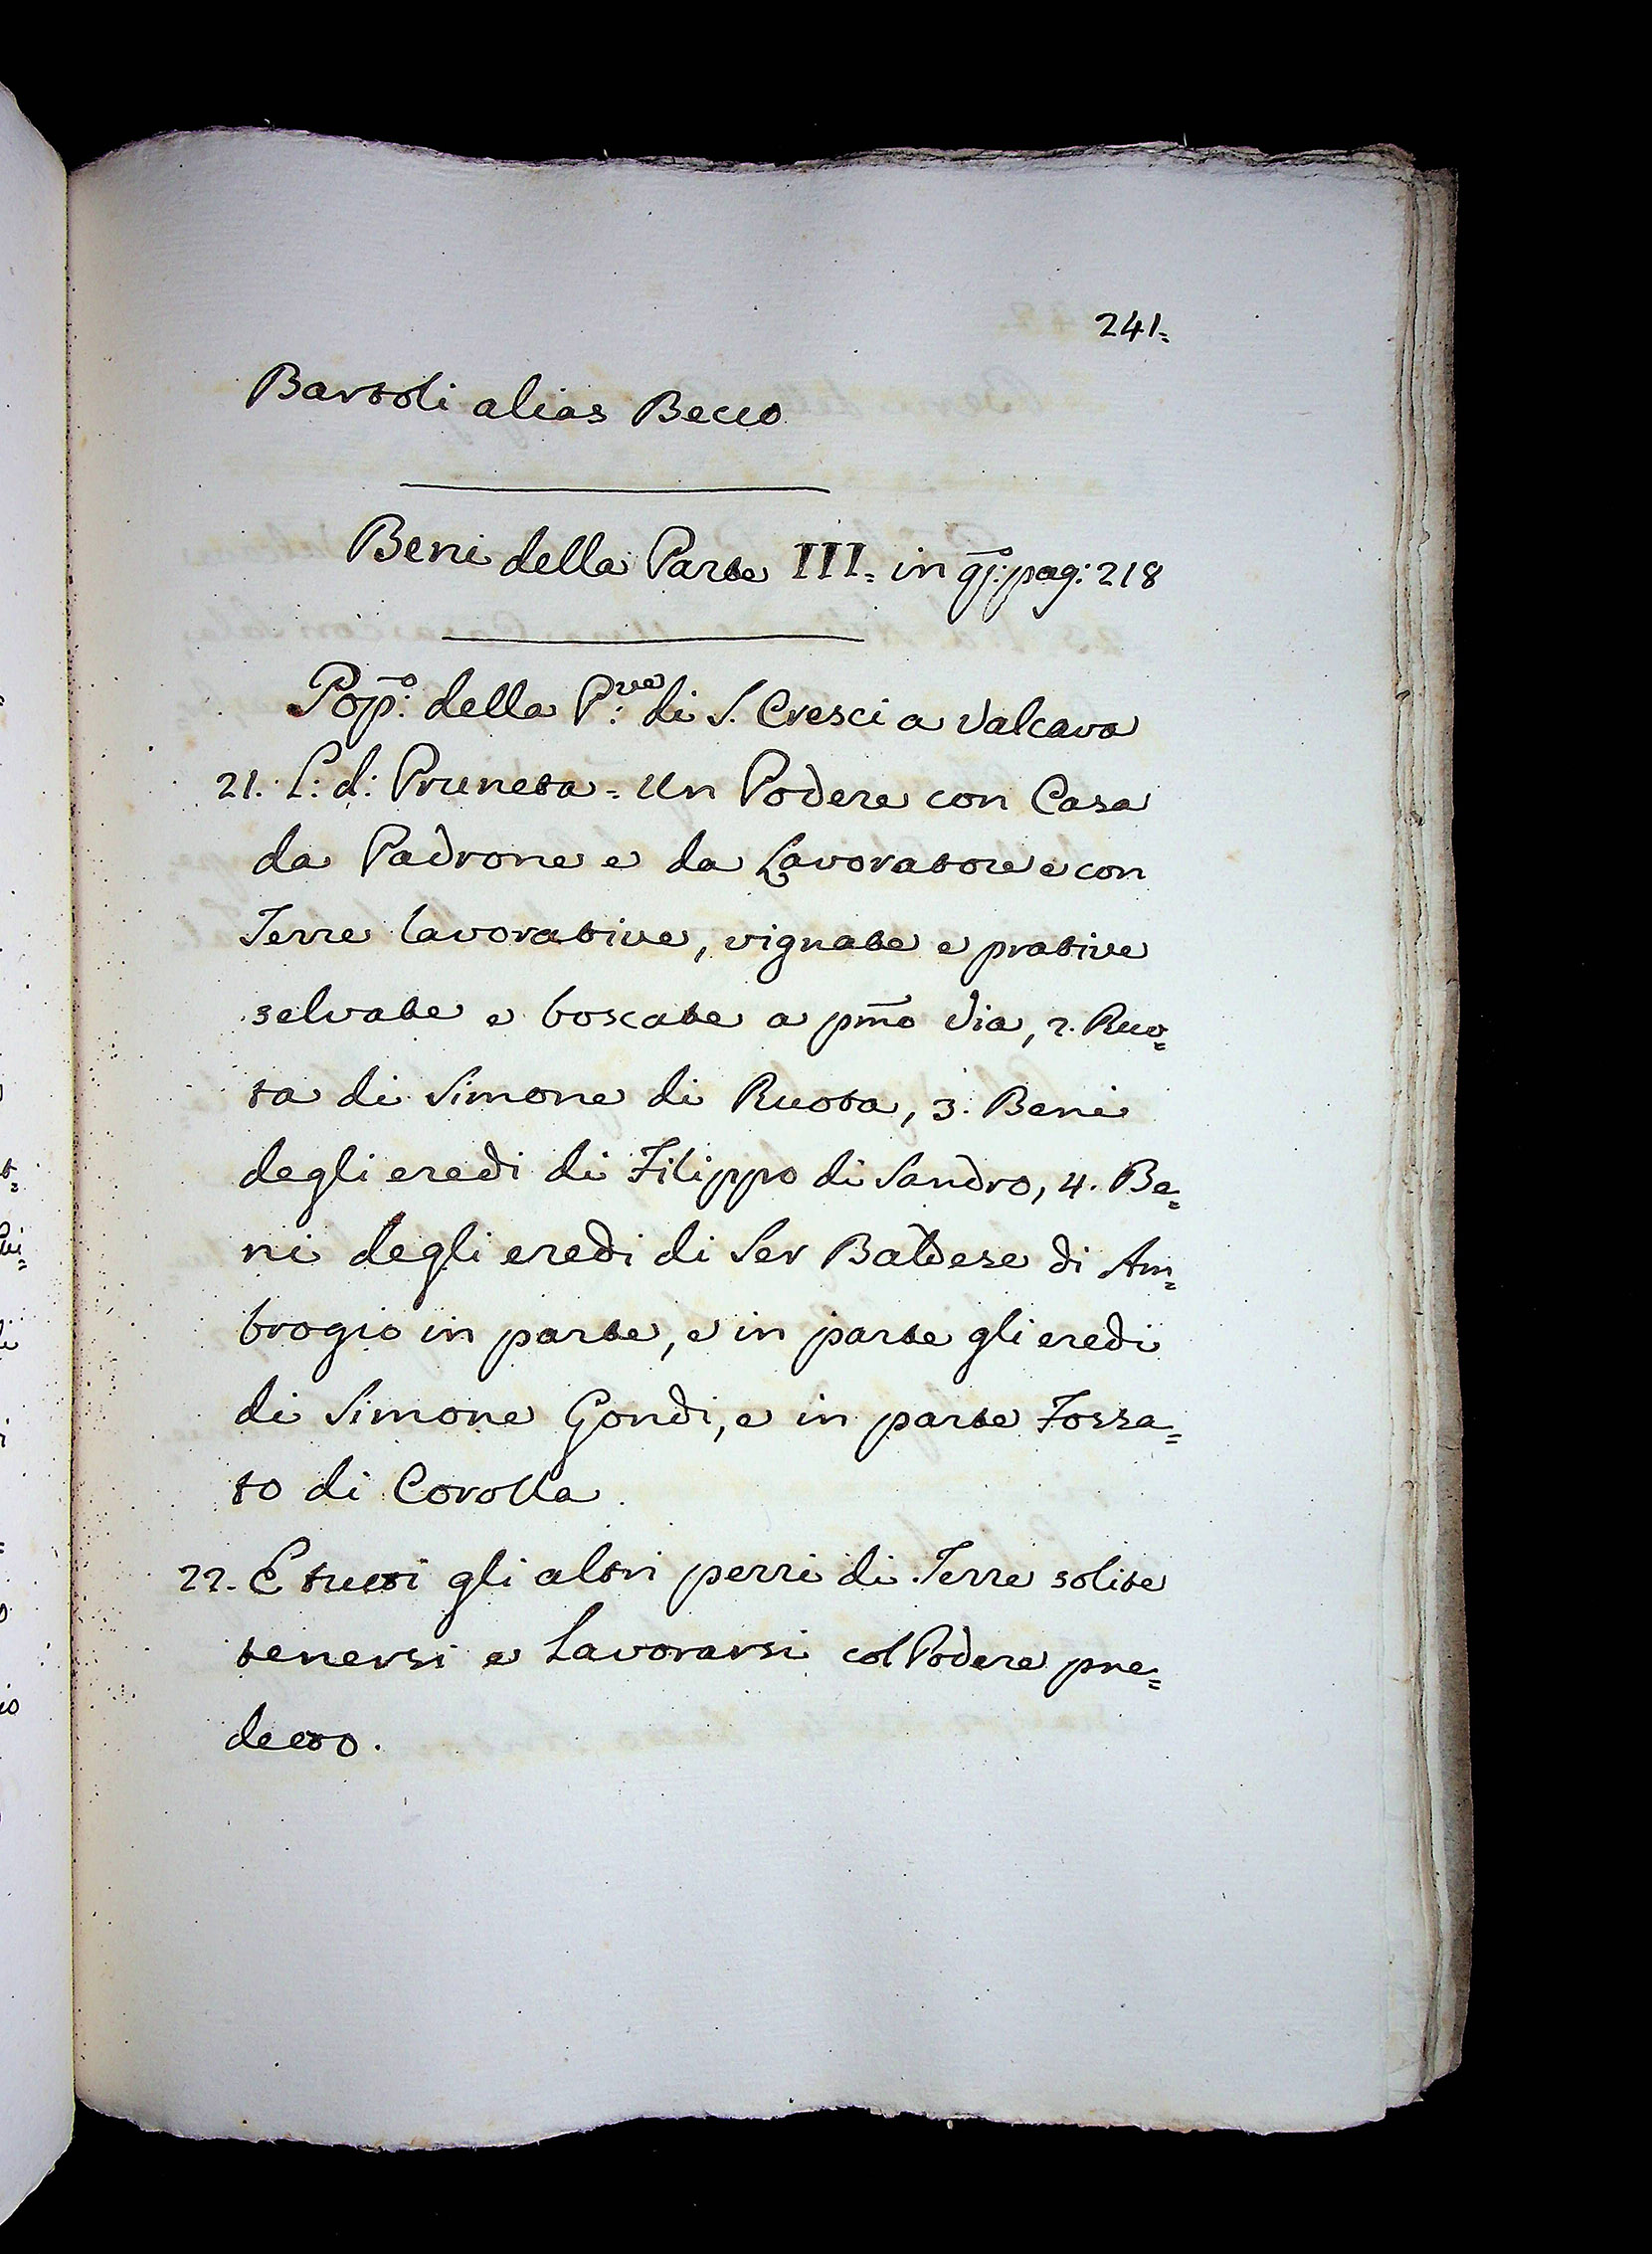 241.
Bartoli alias Becco
Beni della Parte III. in qṡto: pag: 218
Pop̃o: della P:ve di S. Cresci a Valcava
21. L: d: Pruneta = Un Podere con Casa
da Padrone e da Lavoratore e con
Terre lavorative, vignate e prative
selvate e boscate a pm̃o Via, 2. Ruo=
ta di Simone di Ruota, 3. Beni
degli eredi di Filippo di Sandro, 4. Be=
ni degli eredi di Ser Baldese di Am=
brogio in parte, e in parte gli eredi
di Simone Gondi, e in parte Fossa=
to di Corolla.
22. E tutti gli altri pezzi di Terre solite
tenersi e Lavorarsi col Podere pre=
detto.